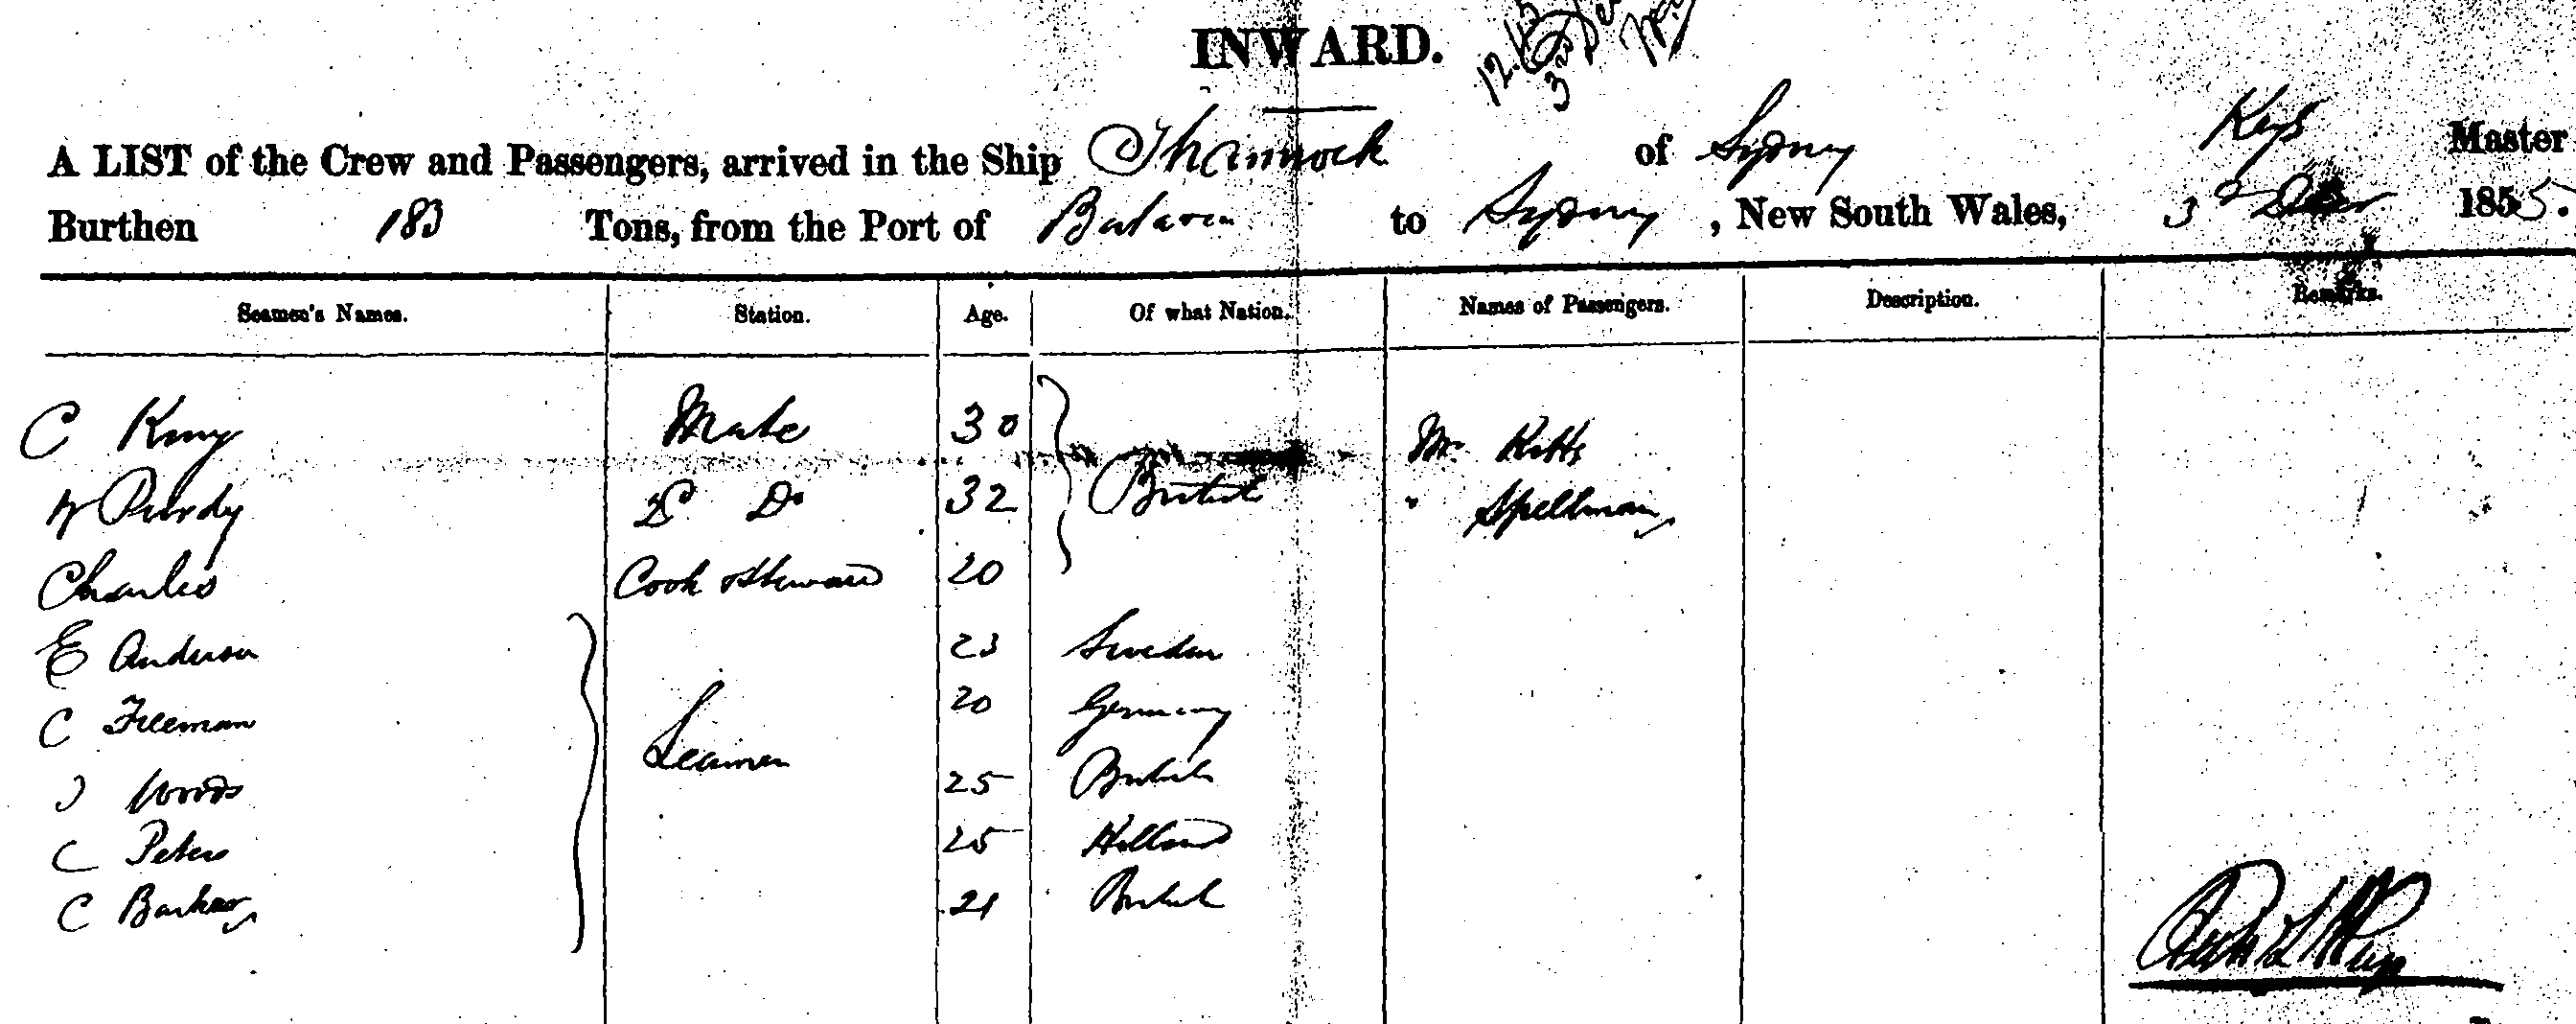 INWARD.
A LIST of the Crew and Passengers, arrived in the Ship Shamrock of Sydney Keys Master
Burthen 183 Tons, from the Port of Batavia to Sydney, New South Wales, 3rd Decr 1855.
Seamen's Names. Station. Age. Of what Nation. Names of Passengers. Description. Remarks.
C King Mate 30 British Mr. Kitts
W Purdy 2d Do 32 " Spellman
Charles Cook & Steward 20
E Anderson Seamen 23 Sweden
C Freeman 20 Germany
J Woods 25 British
C Peters 25 Holland
C Barker 21 British